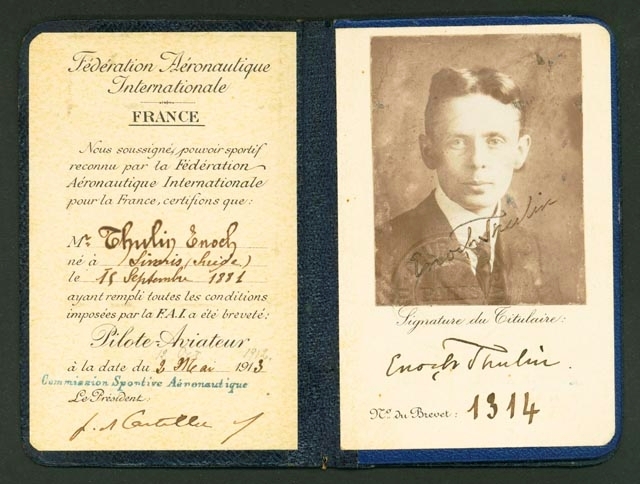 Fédération Aéronautique
Internationale
FRANCE
Nous soussigné, pouvoir sportif
reconnu par la Fédération
Aéronautique Internationale
pour la France, certifions que:
Mr Thulin Enoch
né à Simris (Suède)
le 15 Septembre 1881
ayant rempli toutes les conditions
imposées par la F.A.I. a été breveté:
Pilote-Aviateur
à la date du 2 Mai 1913
Commission Sportive Aéronautique
Le Président:
Enoch Thulin
Signature du Titulaire:
Enoch Thulin.
No. du Brevet: 1314